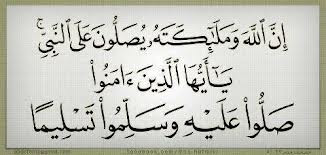 إِنَّ اللَّهَ وَمَلَٰٓئِكَتَهُۥ يُصَلُّونَ عَلَى النَّبِيِّ ۚ
يَٰٓأَيُّهَا الَّذِينَ ءَامَنُوا۟
صَلُّوا۟ عَلَيْهِ وَسَلِّمُوا۟ تَسْلِيمًا